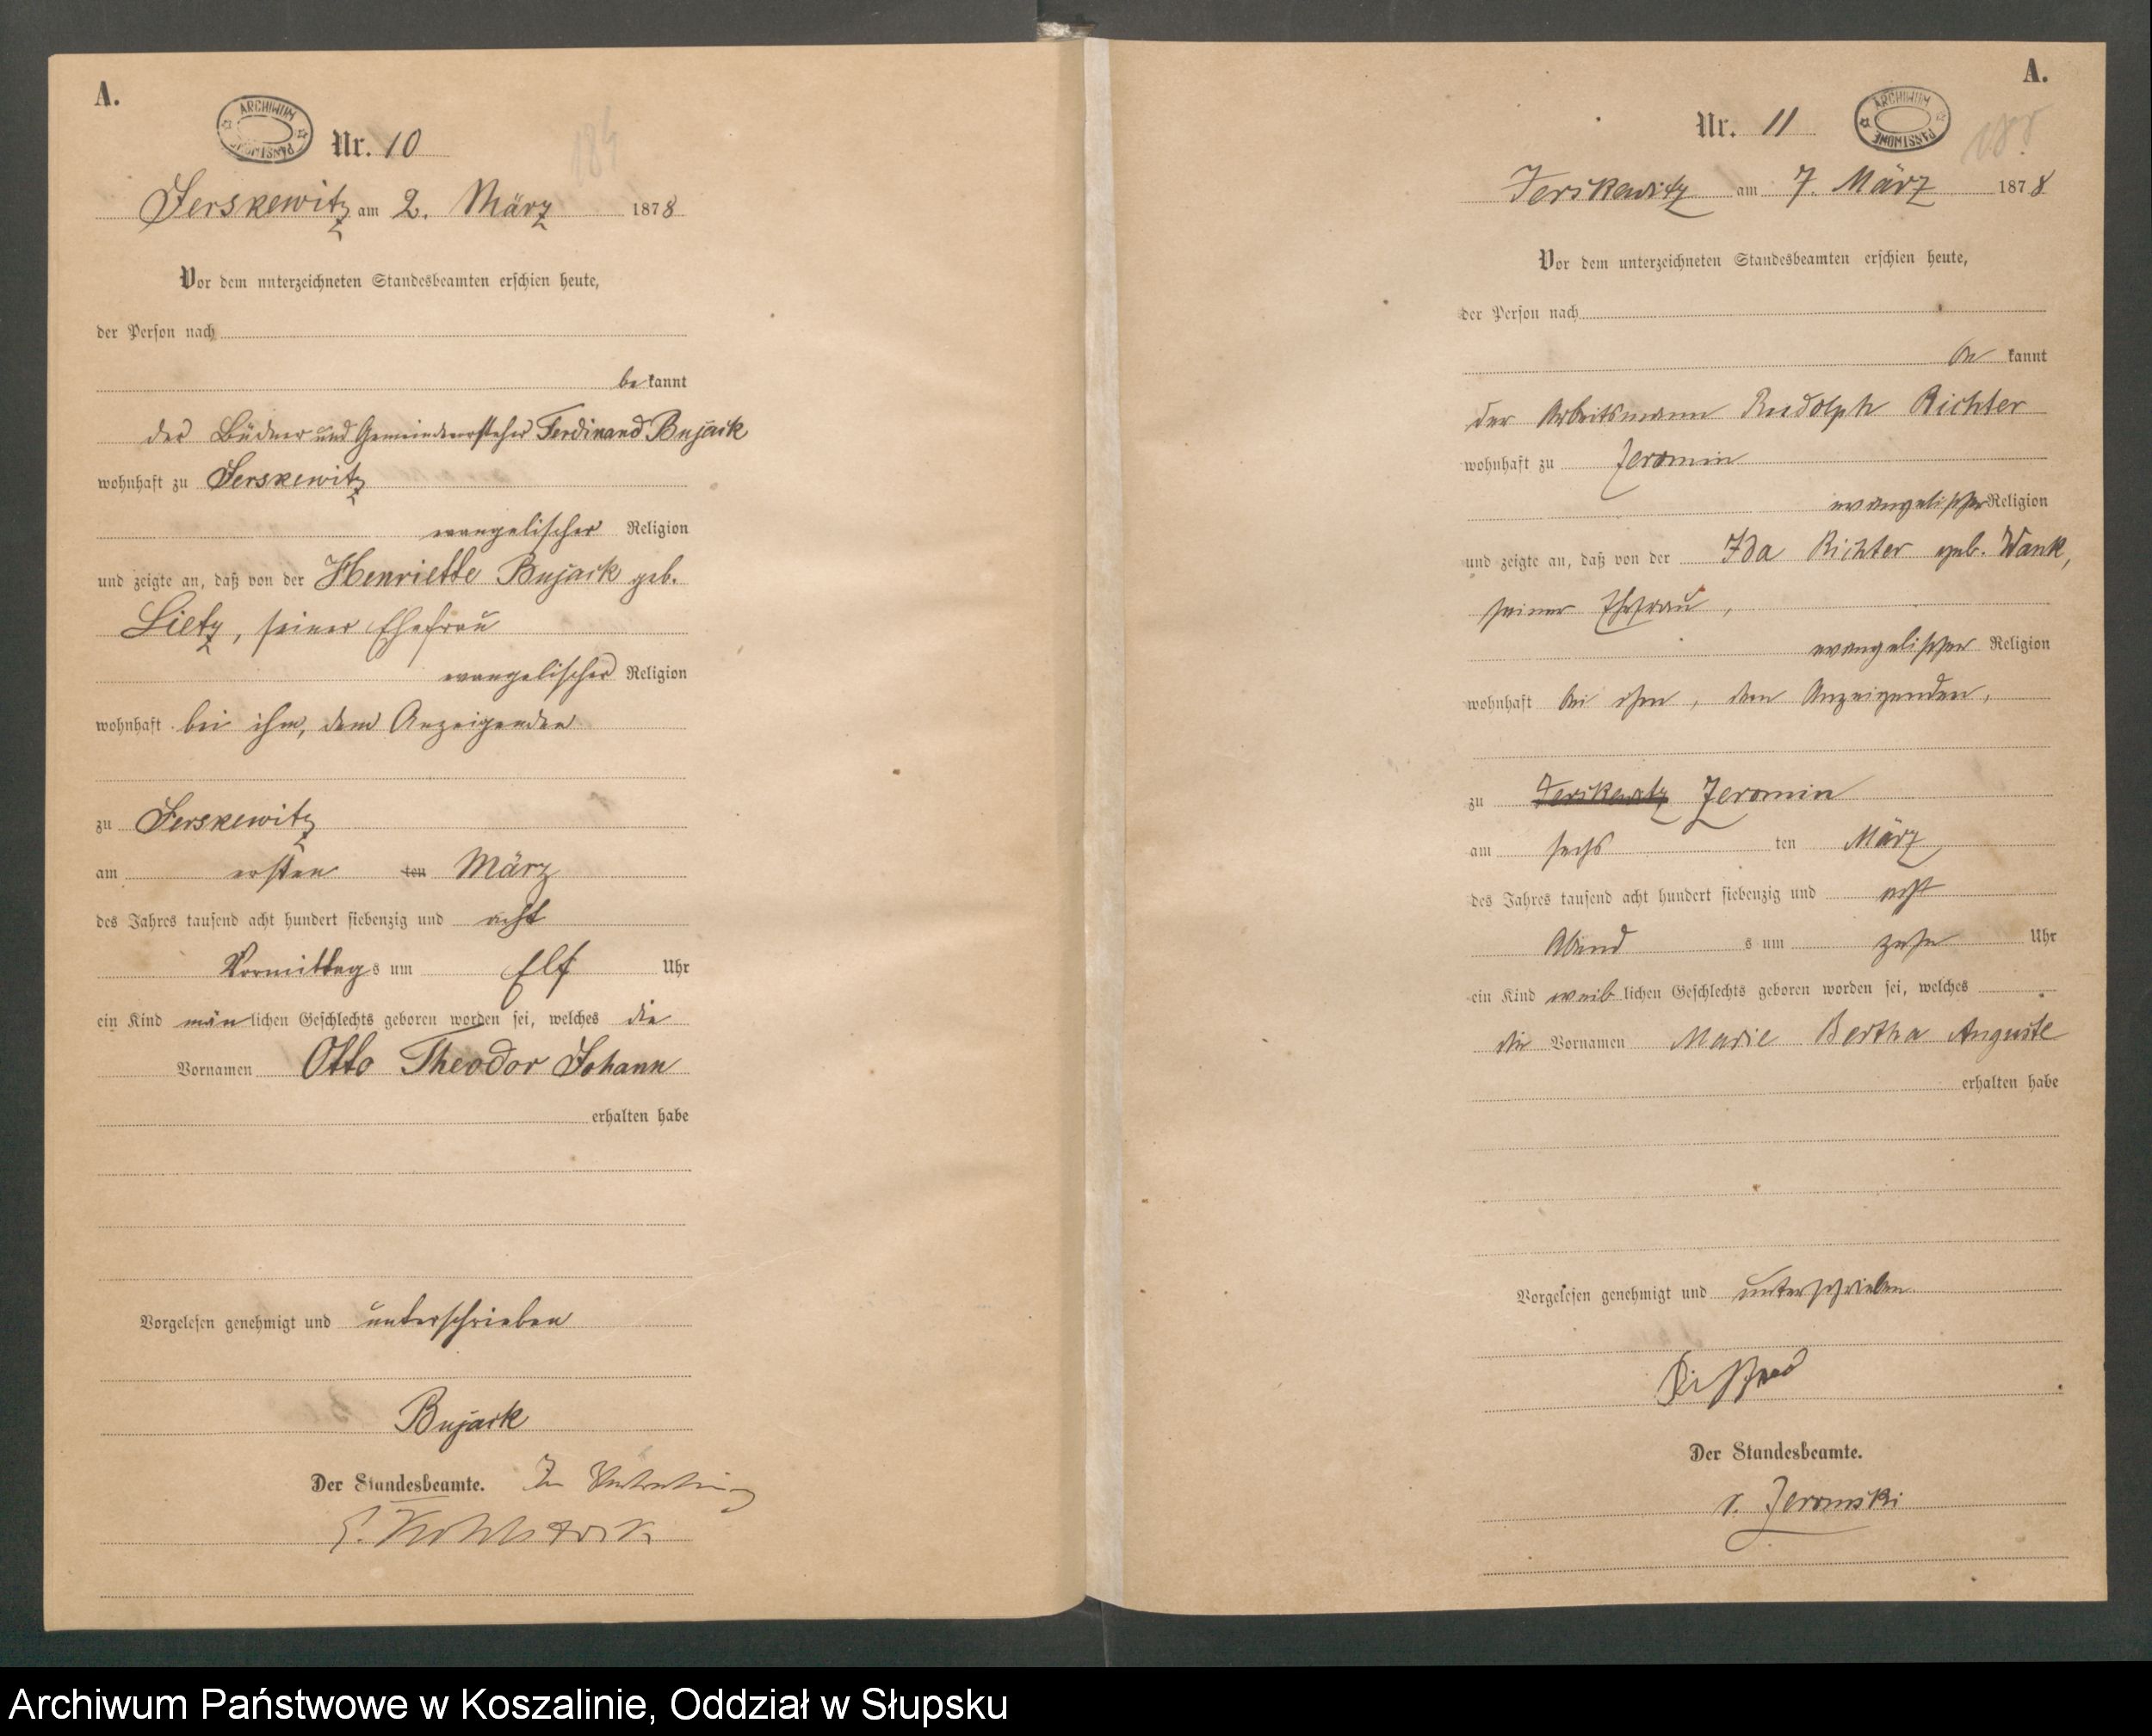 A.
ARCHIWUM PAŃSTWOWE
Nr. 10
Jerskewitz am 2. März 1878
Vor dem unterzeichneten Standesbeamten erschien heute,
der Person nach
be kannt
der Büdner und Gemeindevorsteher Ferdinand Bujack
wohnhaft zu Jerskewitz
evangelischer Religion
und zeigte an, daß von der Henriette Bujack geb.
Lietz, seiner Ehefrau
evangelischer Religion
wohnhaft bei ihm, dem Anzeigenden
zu Jerskewitz
am ersten ten März
des Jahres tausend acht hundert siebenzig und acht
Vormittag s um Elf Uhr
ein Kind män lichen Geschlechts geboren worden sei, welches die
Vornamen Otto Theodor Johann
erhalten habe
Vorgelesen genehmigt und unterschrieben
Bujack
Der Standesbeamte. In Vertretung
A.
Nr. 11
ARCHIWUM PAŃSTWOWE
Jerskewitz am 7. März 1878
Vor dem unterzeichneten Standesbeamten erschien heute,
der Person nach
be kannt
der Arbeitsmann Rudolph Richter
wohnhaft zu Jeromin
evangelischer Religion
und zeigte an, daß von der Ida Richter geb. Wank,
seiner Ehefrau,
evangelischer Religion
wohnhaft bei ihm, dem Anzeigenden,
zu Jerskewitz Jeromin
am sechs ten März
des Jahres tausend acht hundert siebenzig und acht
Abend s um zehn Uhr
ein Kind weib lichen Geschlechts geboren worden sei, welches
die Vornamen Marie Bertha Auguste
erhalten habe
Vorgelesen genehmigt und unterschrieben
Der Standesbeamte.
v. Jeromski
Archiwum Państwowe w Koszalinie, Oddział w Słupsku